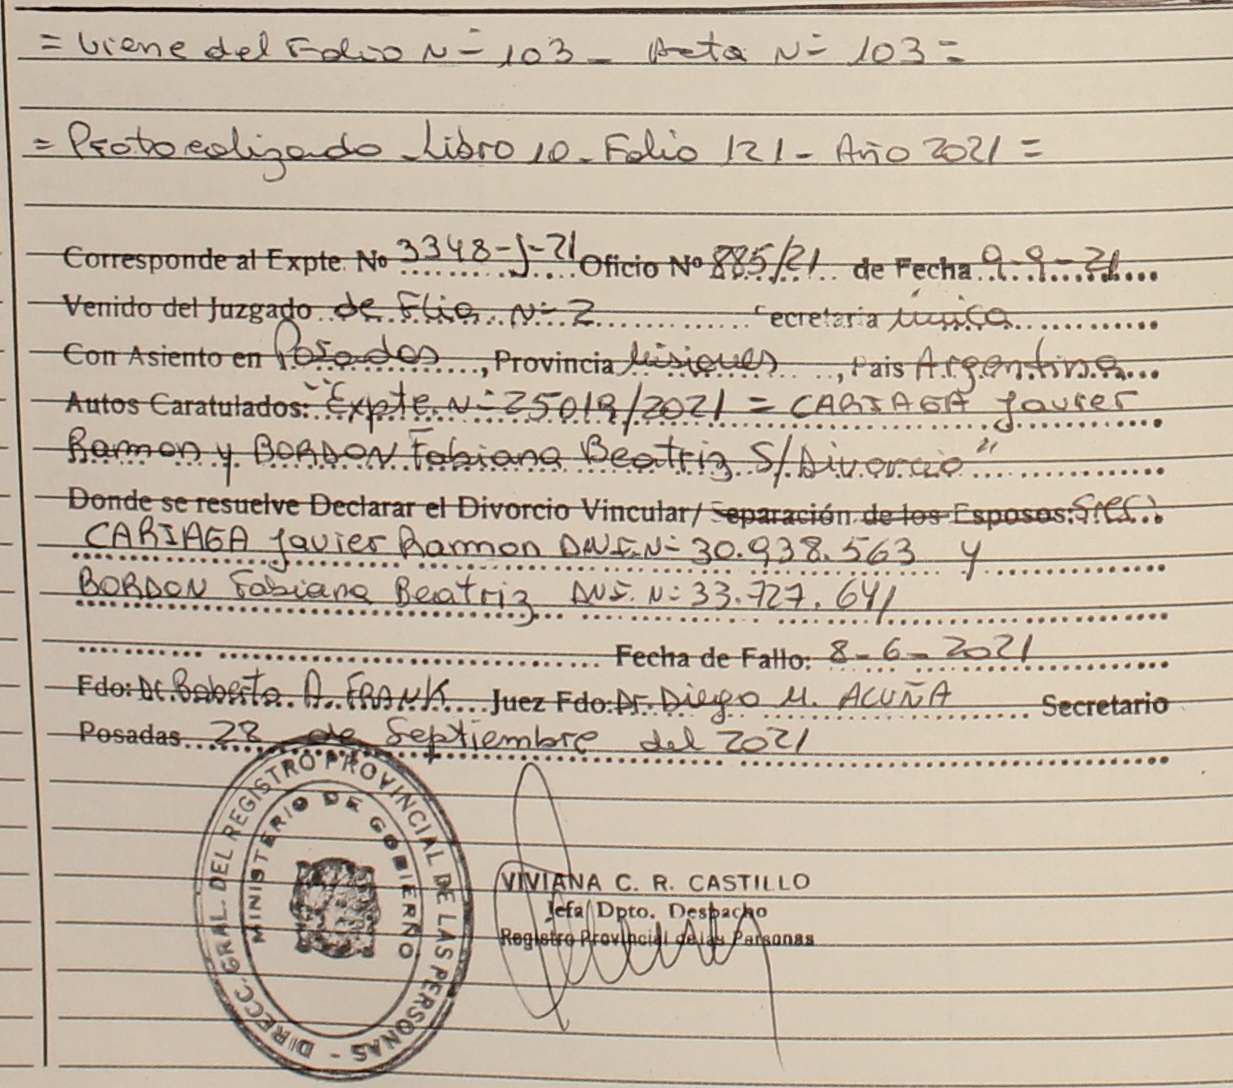 = Viene del Folio Nº 103 - Acta Nº 103 =
= Protocolizado - Libro 10 - Folio 121 - Año 2021 =
Corresponde al Expte. Nº 3348-J-21 Oficio Nº 885/21 de Fecha 9-9-21
Venido del Juzgado de Flia. Nº 2 Secretaria única
Con Asiento en Posadas, Provincia Misiones, Pais Argentina
Autos Caratulados: "Expte. Nº 25019/2021 = CARIAGA Javier
Ramon y BORDON Fabiana Beatriz S/Divorcio"
Donde se resuelve Declarar el Divorcio Vincular/ Separación de los Esposos: Sres.
CARIAGA Javier Ramon D.N.I. Nº 30.938.563 y
BORDON Fabiana Beatriz D.N.I. Nº 33.727.641
Fecha de Fallo: 8-6-2021
Fdo: Dr. Roberto A. FRANK Juez Fdo: Dr. Diego M. ACUÑA Secretario
Posadas 28 de Septiembre del 2021
DIRECC. GRAL. DEL REGISTRO PROVINCIAL DE LAS PERSONAS -
MINISTERIO DE GOBIERNO
VIVIANA C. R. CASTILLO
Jefa Dpto. Despacho
Registro Provincial de las Personas